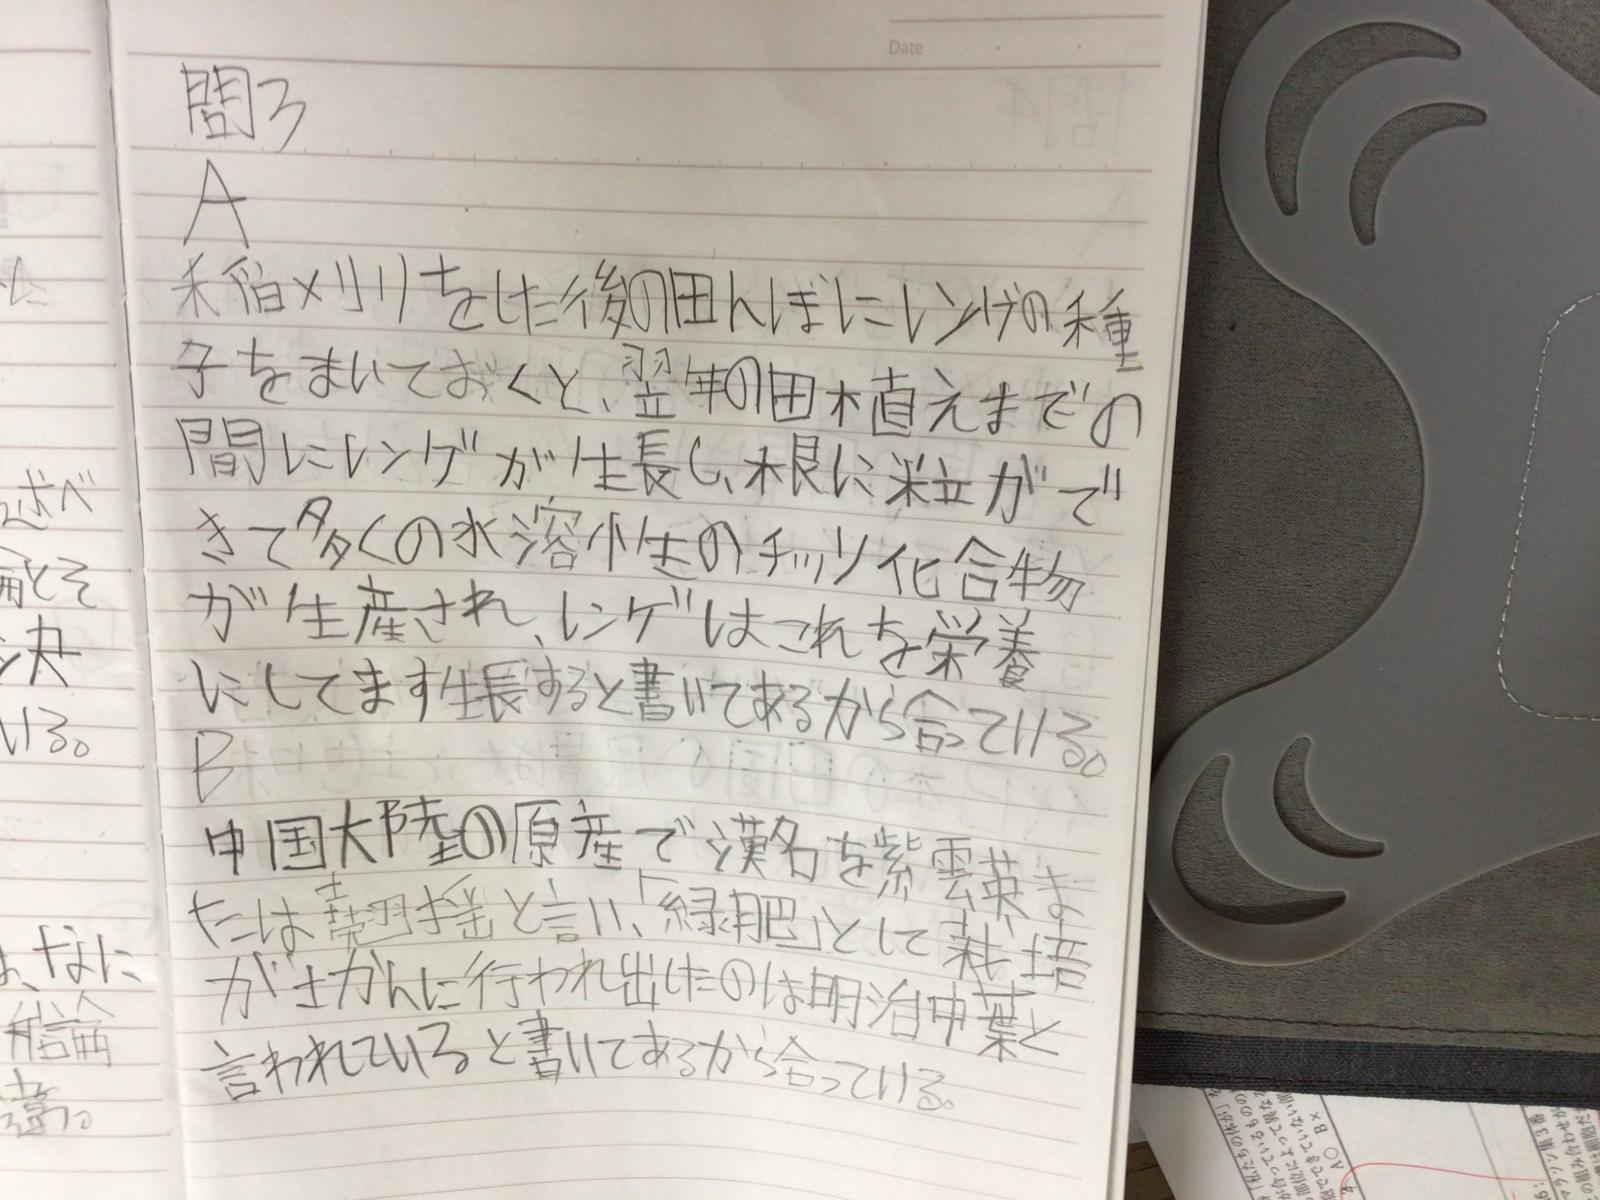 Date
問3
A
稲メリリをした後の田んぼにレンゲの種
子をまいておくと、翌年の田植えまでの
間にレンゲが生長し、根に粒がで
きて多くの水溶性のチッソ化合物
が生産され、レンゲはこれを栄養
にしてます生長すると書いてあるから合っている。
B
中国大陸の原産で漢名を紫雲英ま
たは翹揺と言い、「緑肥」として栽培
がさかんに行われ出したのは明治中葉と
言われていると書いてあるから合っている。
述べ
とそ
決
いる。
、なに